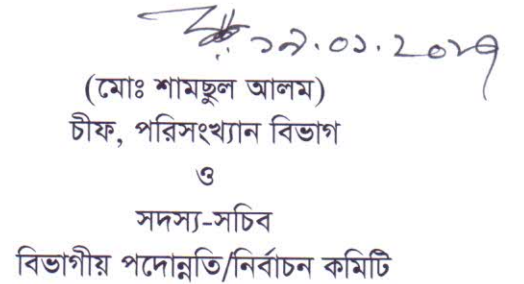 ১৭.০১.২০১৭
(মোঃ শামছুল আলম)
চীফ, পরিসংখ্যান বিভাগ
ও
সদস্য-সচিব
বিভাগীয় পদোন্নতি/নির্বাচন কমিটি